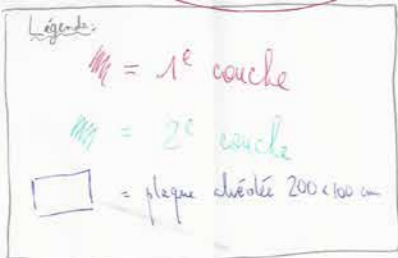 Légende:
= 1e couche
= 2e couche
= plaque alvéolée 200x100 cm